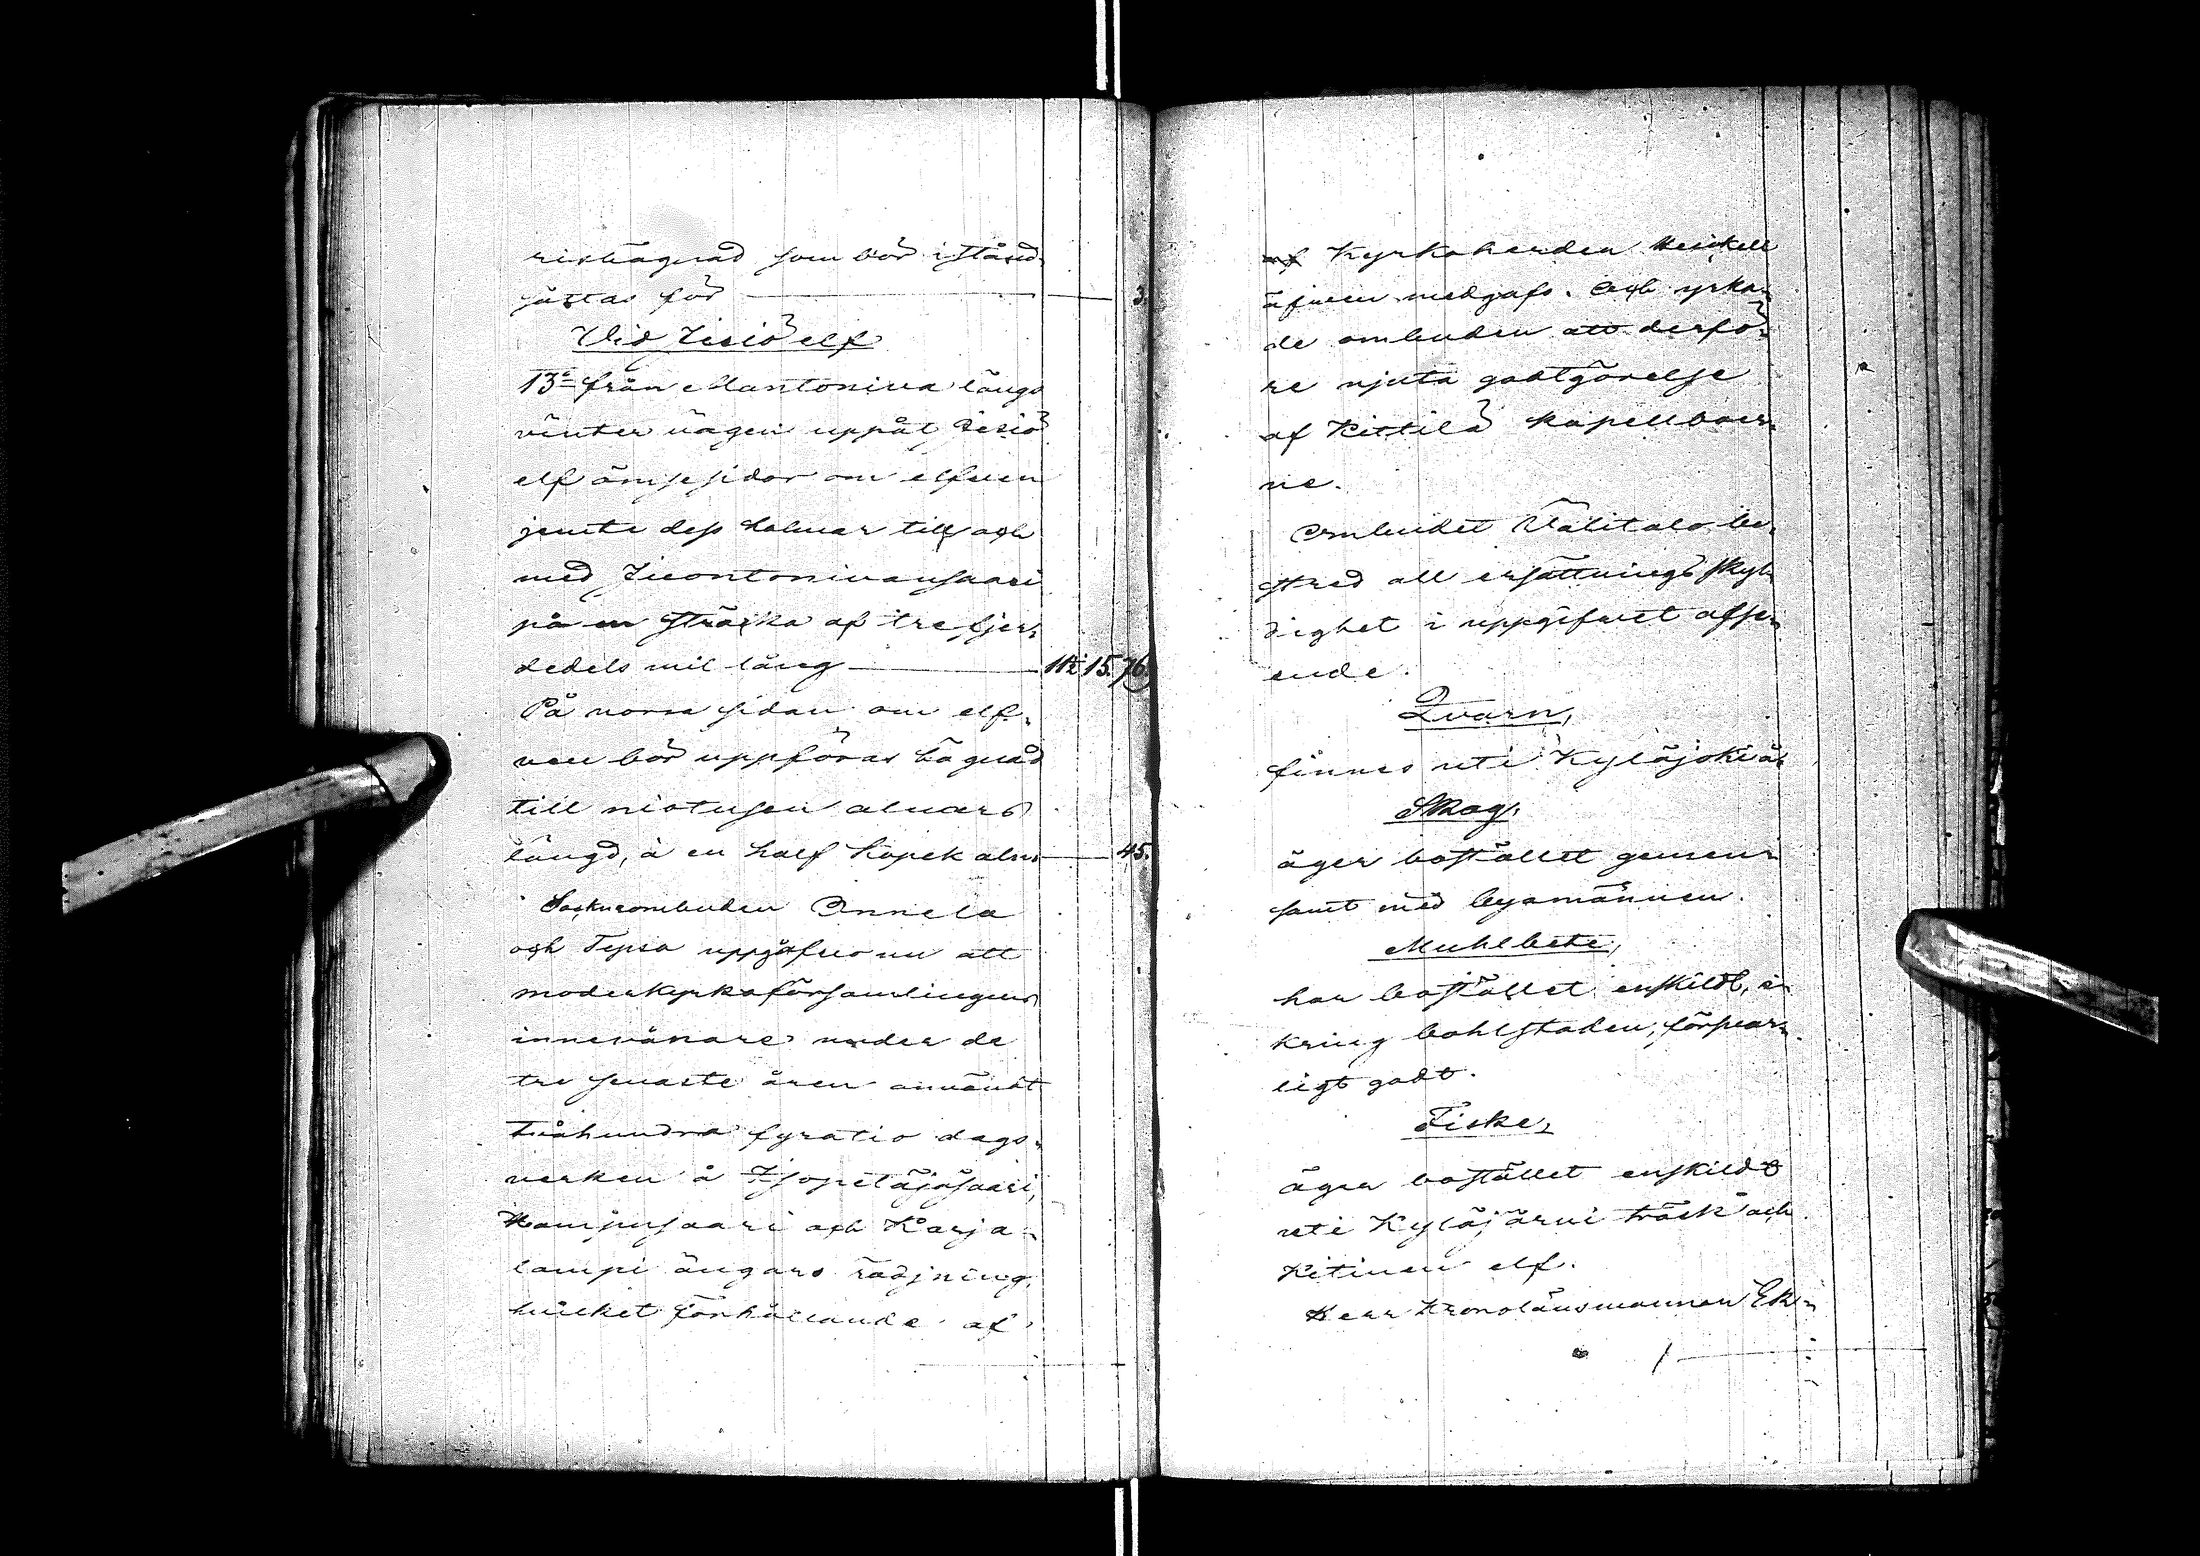 rishägnad som bör i stånd
sättas för — 3.
Vid Jesiö elf
13º från Mantoniva längs
vinter vägen uppåt Jesiö
elf ömse sidor om elfven
jemte dess holmar till och
med Juontonivansaari
på en sträcka af tre fjer-
dedels mil lång — 112 15. 76.
På norra sidan om elf-
ven bör uppföras hägnad
till niotusen alnars
längd, à en half kopek aln — 45.
Socknеombuden Onnela
och Tepsa uppgåfvo nu att
moderkyrkoförsamlingens
innevånare under de
tre senaste åren användt
tvåhundra fyratio dags-
verken å Isopeläjäsaari,
Kampusaari och Karja-
lampi ängars rödjning,
hvilket förhållande af
af Kyrkoherden Heickell
äfven medgafs. Och yrka-
de ombuden att derfö-
re njuta godtgörelse
af Kittilä kapellboer-
ne.
Ombudet Välitalo be-
stred all ersättnings skyl-
dighet i uppgifvet afse-
ende.
Qvarn,
finnes uti Kyläjoki å
Skog,
äger bostället gemen-
samt med byamännen.
Muhlbete,
har bostället enskildt, i-
kring bohlstaden, försvar-
ligt godt.
Fiske,
äger bostället enskildt
uti Kyläjärvi träsk och
Kitinen elf.
Herr Kronolänsmannen Ek-